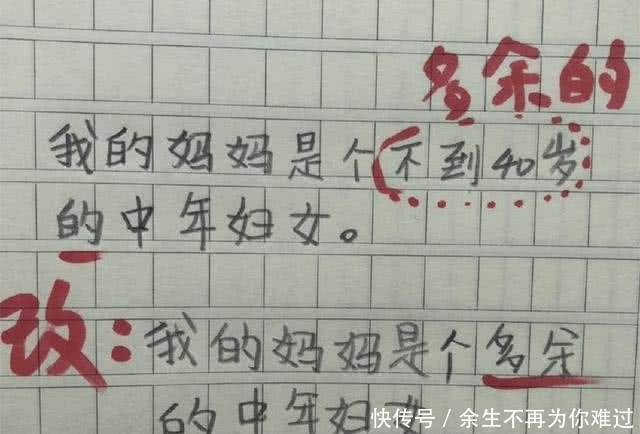 多余的
我的妈妈是个不到40岁
的中年妇女。
改:我的妈妈是个多余
的中年妇女
快传号 / 余生不再为你难过